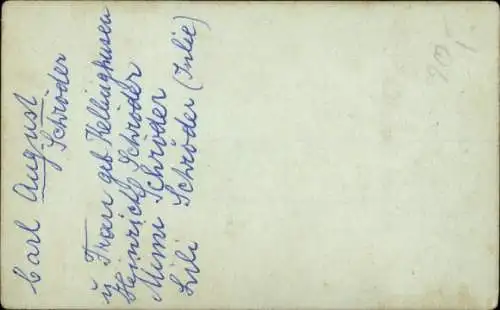 Carl August
Schröder
u Frau geb Kellinghusen
Heinrich Schröder
Mimi Schröder
Lili Schröder (Julie)
20,-